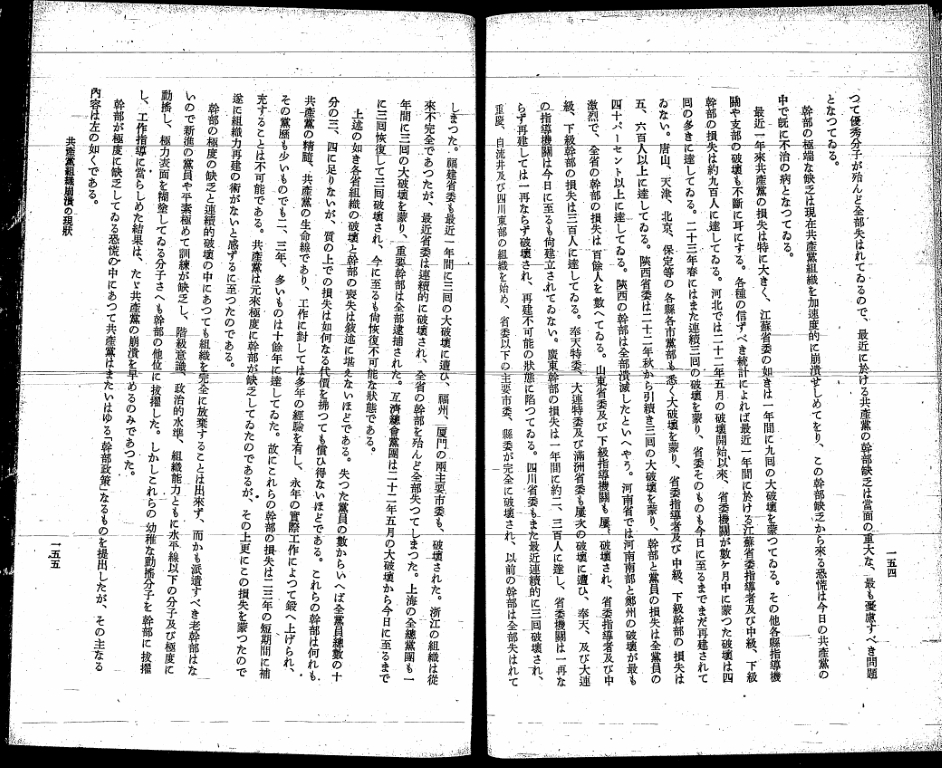 つて優秀分子が殆んど全部失はれてゐるので、最近に於ける共産黨の幹部缺乏は當面の重大な、最も憂慮すべき問題
となつてゐる。
幹部の極端な缺乏は現在共産黨組織を加速度的に崩潰せしめてをり、この幹部缺乏から來る恐慌は今日の共産黨の
中で既に不治の病となつてゐる。
最近一年來共産黨の損失は特に大きく、江蘇省委の如きは一年間に九回の大破壞を蒙つてゐる。その他各縣指導機
關や支部の破壞も不斷に耳にする。各種の信ずべき統計によれば最近一年間に於ける江蘇省委指導者及び中級、下級
幹部の損失は約九百人に達してゐる。河北では二十二年五月の破壞開始以來、省委機關が數ケ月中に蒙つた破壞は四
回の多きに達してゐる。二十三年春にはまた連續三回の破壞を蒙り、省委そのものも今日に至るまでまだ再建されて
ゐない。唐山、天津、北京、保定等の各縣各市黨部も悉く大破壞を蒙り、省委指導者及び中級、下級幹部の損失は
五、六百人以上に達してゐる。陝西省委は二十二年秋から引續き三回の大破壞を蒙り、幹部と黨員の損失は全黨員の
四十パーセント以上に達してゐる。陝西の幹部は全部潰滅したといへやう。河南省では河南南部と鄭州の破壞が最も
激烈で、全省の幹部の損失は百餘人を數へてゐる。山東省委及び下級指導機關も屢〻破壞され、省委指導者及び中
級、下級幹部の損失は三百人に達してゐる。奉天特委、大連特委及び滿洲省委も屢次の破壞に遭ひ、奉天、及び大連
の指導機關は今日に至るも尙建立されてゐない。廣東幹部の損失は一年間に約二、三百人に達し、省委機關は一再な
らず再建しては一再ならず破壞され、再建不可能の狀態に陷つてゐる。四川省委もまた最近連續的に三回破壞され、
重慶、自流井及び四川東部の組織を始め、省委以下の主要市委、縣委が完全に破壞され、以前の幹部は全部失はれて
一五四
しまつた。福建省委も最近一年間に三回の大破壞に遭ひ、福州、厦門の兩主要市委も、破壞された。浙江の組織は從
來不完全であつたが、最近省委は連續的に破壞され、全省の幹部を殆んど全部失つてしまつた。上海の全總黨團も一
年間に三回の大破壞を蒙り、重要幹部は全部逮捕された。互濟總會黨團は二十二年五月の大破壞から今日に至るまで
に三回恢復して三回破壞され、今に至るも尙恢復不可能な狀態である。
上述の如き各省組織の破壞と幹部の喪失は敍述に堪えないほどである。失つた黨員の數からいへば全黨員總數の十
分の三、四に足りないが、質の上での損失は如何なる代價を拂つても償ひ得ないほどである。これらの幹部は何れも
共産黨の精髓、共産黨の生命線であり、工作に對しては多年の經驗を有し、永年の實際工作によつて鍛へ上げられ、
その黨歷も少いものでも二、三年、多いものは十餘年に達してゐた。故にこれらの幹部の損失は二三年の短期間に補
充することは不可能である。共産黨は元來極度に幹部が缺乏してゐたのであるが、その上更にこの損失を蒙つたので
遂に組織力再建の術がないと感ずるに至つたのである。
幹部の極度の缺乏と連續的破壞の中にあつても組織を完全に放棄することは出來ず、而かも派遣すべき老幹部はな
いので新進の黨員や平素極めて訓練が缺乏し、階級意識、政治的水準、組織能力ともに水平線以下の分子及び極度に
動搖し、極力表面を糊塗してゐる分子さへも幹部の他位に拔擢した。しかしこれらの幼稚な動搖分子を幹部に拔擢
し、工作指導に當らしめた結果は、たゞ共産黨の崩潰を早めるのみであつた。
幹部が極度に缺乏してゐる恐慌の中にあつて共産黨はまたいはゆる「幹部政策」なるものを提出したが、その主なる
內容は左の如くである。
共産黨組織崩潰の現狀
一五五